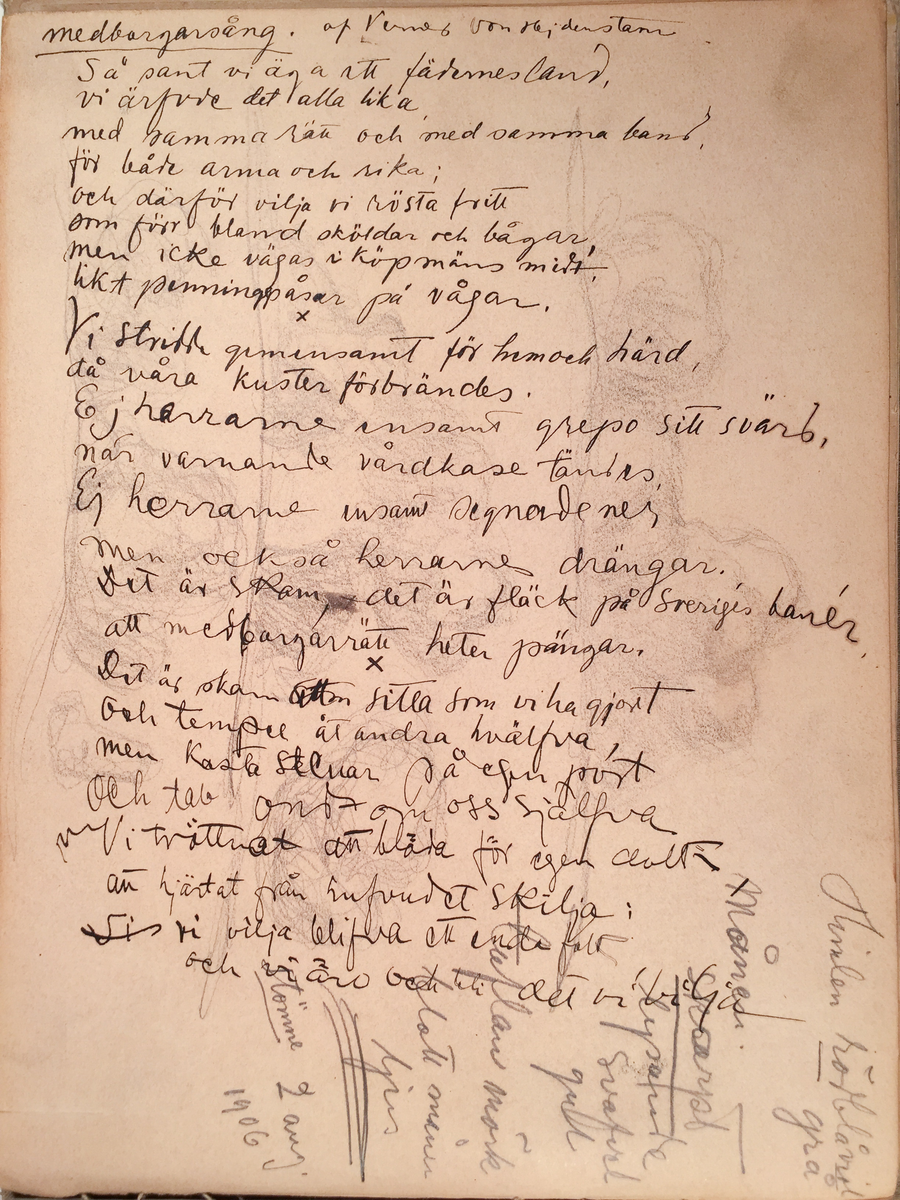 medborgarsång. af Verner von Heidenstam
Så sant vi äga ett fädernesland,
vi ärfvde det alla lika
med samma rätt och med samma band,
för både arma och rika;
och därför vilja vi rösta fritt
som förr bland sköldar och bågar,
men icke vägas i köpmäns midt,
likt penningpåsar på vågar.
x
Vi stridde gemensamt för hem och härd,
då våra kuster förbrändes.
Ej herrarne ensamt grepo sitt svärd,
när varnande vårdkase tändes,
Ej herrarne ensamt segnade ner,
men också herrarne drängar.
Det är skam, det är fläck på Sveriges banér,
att medborgarrätt heter pängar.
x
Det är skam att sitta som vi ha gjort
och tempel åt andra hvälfva,
men kasta stenar på egen port
och tala ondt om oss själfva
Vi tröttnat att blöda för egen dolk
att hjärtat från hufvudet skilja;
vi vilja blifva ett enda folk
och vi äro och bli det vi vilja
x
Himlen rödblåvio
grå
Månen
skarpt
lysande
svafvel
gult
mörk
ljus
Stömne 2 aug.
1906